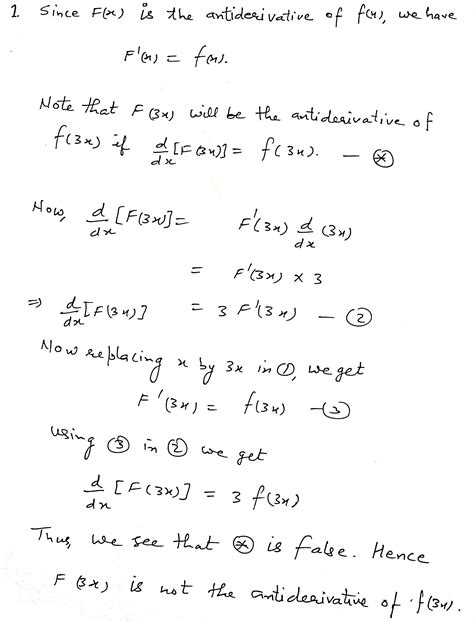 1. Since F(x) is the antiderivative of f(x), we have
F'(x) = f(x).
Note that F(3x) will be the antiderivative of
f(3x) if d/dx [F(3x)] = f(3x). — ⊛
Now, d/dx [F(3x)] = F'(3x) d/dx (3x)
= F'(3x) × 3
⇒ d/dx [F(3x)] = 3 F'(3x) — ②
Now replacing x by 3x in ①, we get
F'(3x) = f(3x) — ③
using ③ in ② we get
d/dx [F(3x)] = 3 f(3x)
Thus, we see that ⊛ is false. Hence
F(3x) is not the antiderivative of f(3x).